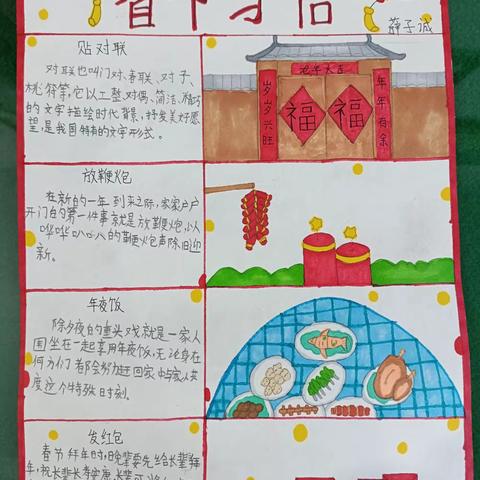 春节习俗
薛子诚
贴对联
对联也叫门对、春联、对子、
桃符等,它以工整、对偶、简洁、精巧
的文字描绘时代背景,抒发美好愿
望,是我国特有的文字形式。
兔年大吉
岁岁兴旺
福
福
年年有余
放鞭炮
在新的一年到来之际,家家户户
开门的第一件事就是放鞭炮,以
哗哗叭叭的鞭炮声除旧迎
新。
年夜饭
除夕夜的重头戏就是一家人
围坐在一起享用年夜饭,无论身在
何方人们都会努力赶回家中与家人共
度这个特殊时刻。
发红包
春节拜年时,晚辈要先给长辈拜
年,祝长辈长寿安康,长辈可